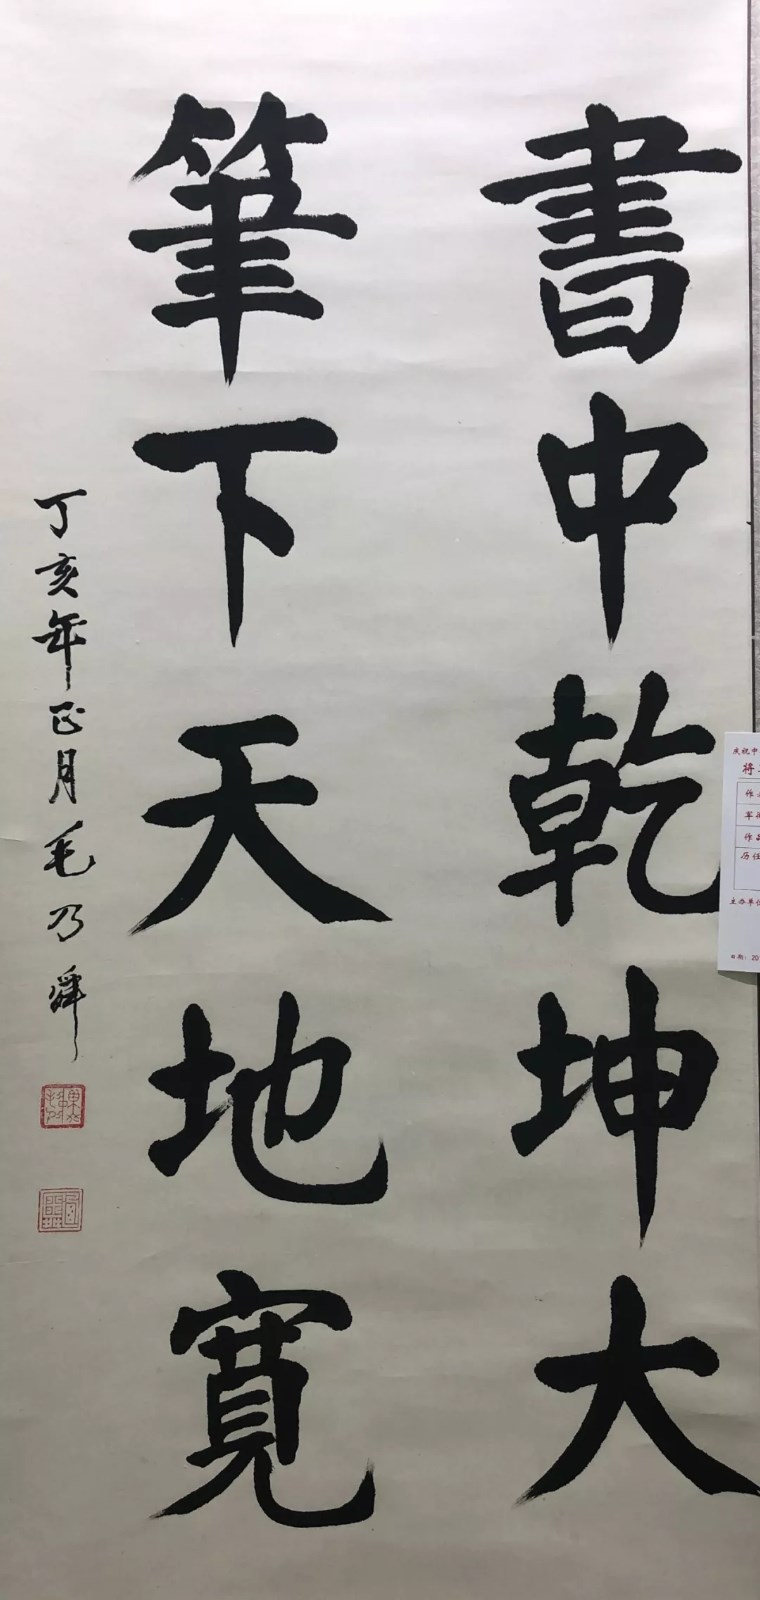 書中乾坤大
筆下天地寬
丁亥年正月毛乃舜
庆祝中
将
作
军
作品
历任
主办单位
日期：20